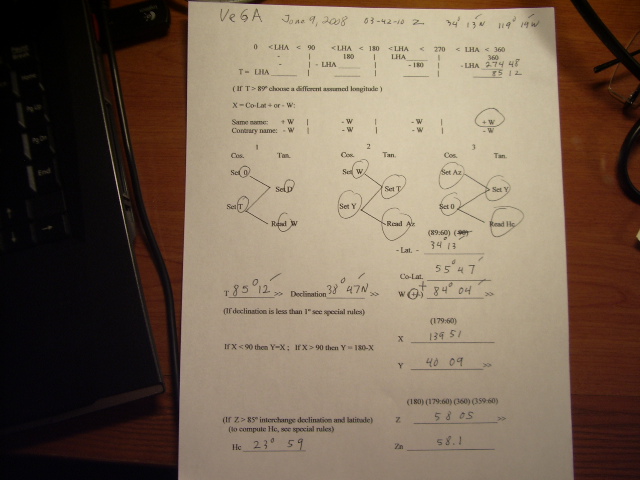 VEGA June 9, 2008 03-42-10 Z 34° 13' N 119° 19' W
0 < LHA < 90 < LHA < 180 < LHA < 270 < LHA < 360
- | 180 | LHA____ | 360
- | - LHA ____ | -180 | - LHA 274 48
T = LHA ____ ____ ____ 85 12
( If T > 89° choose a different assumed longitude )
X = Co-Lat + or - W:
Same name: + W | - W | - W | + W
Contrary name: - W | - W | - W | - W
1 2 3
Cos. Tan. Cos. Tan. Cos. Tan.
Set 0 Set W Set Az
Set D Set T Set Y
Set T Set Y Set 0
Read W Read Az Read Hc
(89:60) (90)
- Lat. - 34° 13'
Co-Lat 55° 47'
T 85° 12' >> Declination 38° 47N >> W (+-) + 84° 04' >>
(If declination is less than 1° see special rules)
(179:60)
X 139 51
If X < 90 then Y=X ; If X > 90 then Y = 180-X
Y 40 09 >>
(180) (179:60) (360) (359:60)
(If Z > 85° interchange declination and latitude) Z 58 05 >>
(to compute Hc, see special rules)
Hc 23° 59 Zn 58.1